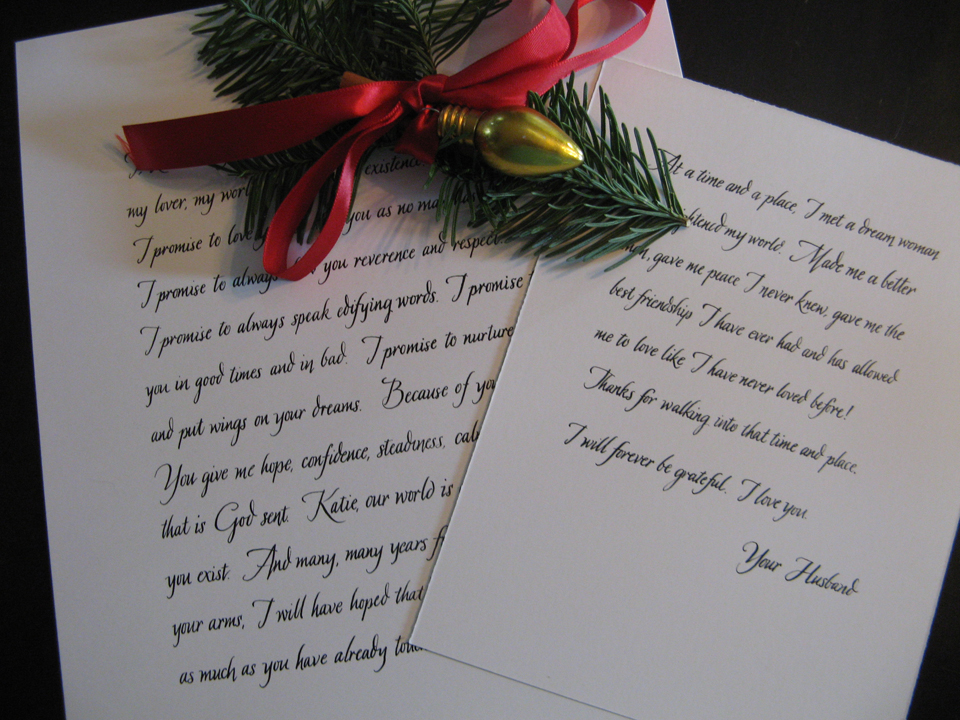 existence.
my lover, my
you as no
I promise to love
I promise to always you reverence and respect.
I promise to always speak edifying words. I promise
you in good times and in bad. I promise to nurture
and put wings on your dreams. Because of you
You give me hope, confidence, steadiness,
that is God sent. Katie, our world is
you exist. And many, many years
your arms, I will have hoped that
as much as you have already
At a time and a place, I met a dream woman
my world. Made me a better
gave me peace I never knew, gave me the
best friendship I have ever had and has allowed
me to love like I have never loved before!
Thanks for walking into that time and place.
I will forever be grateful. I love you.
Your Husband